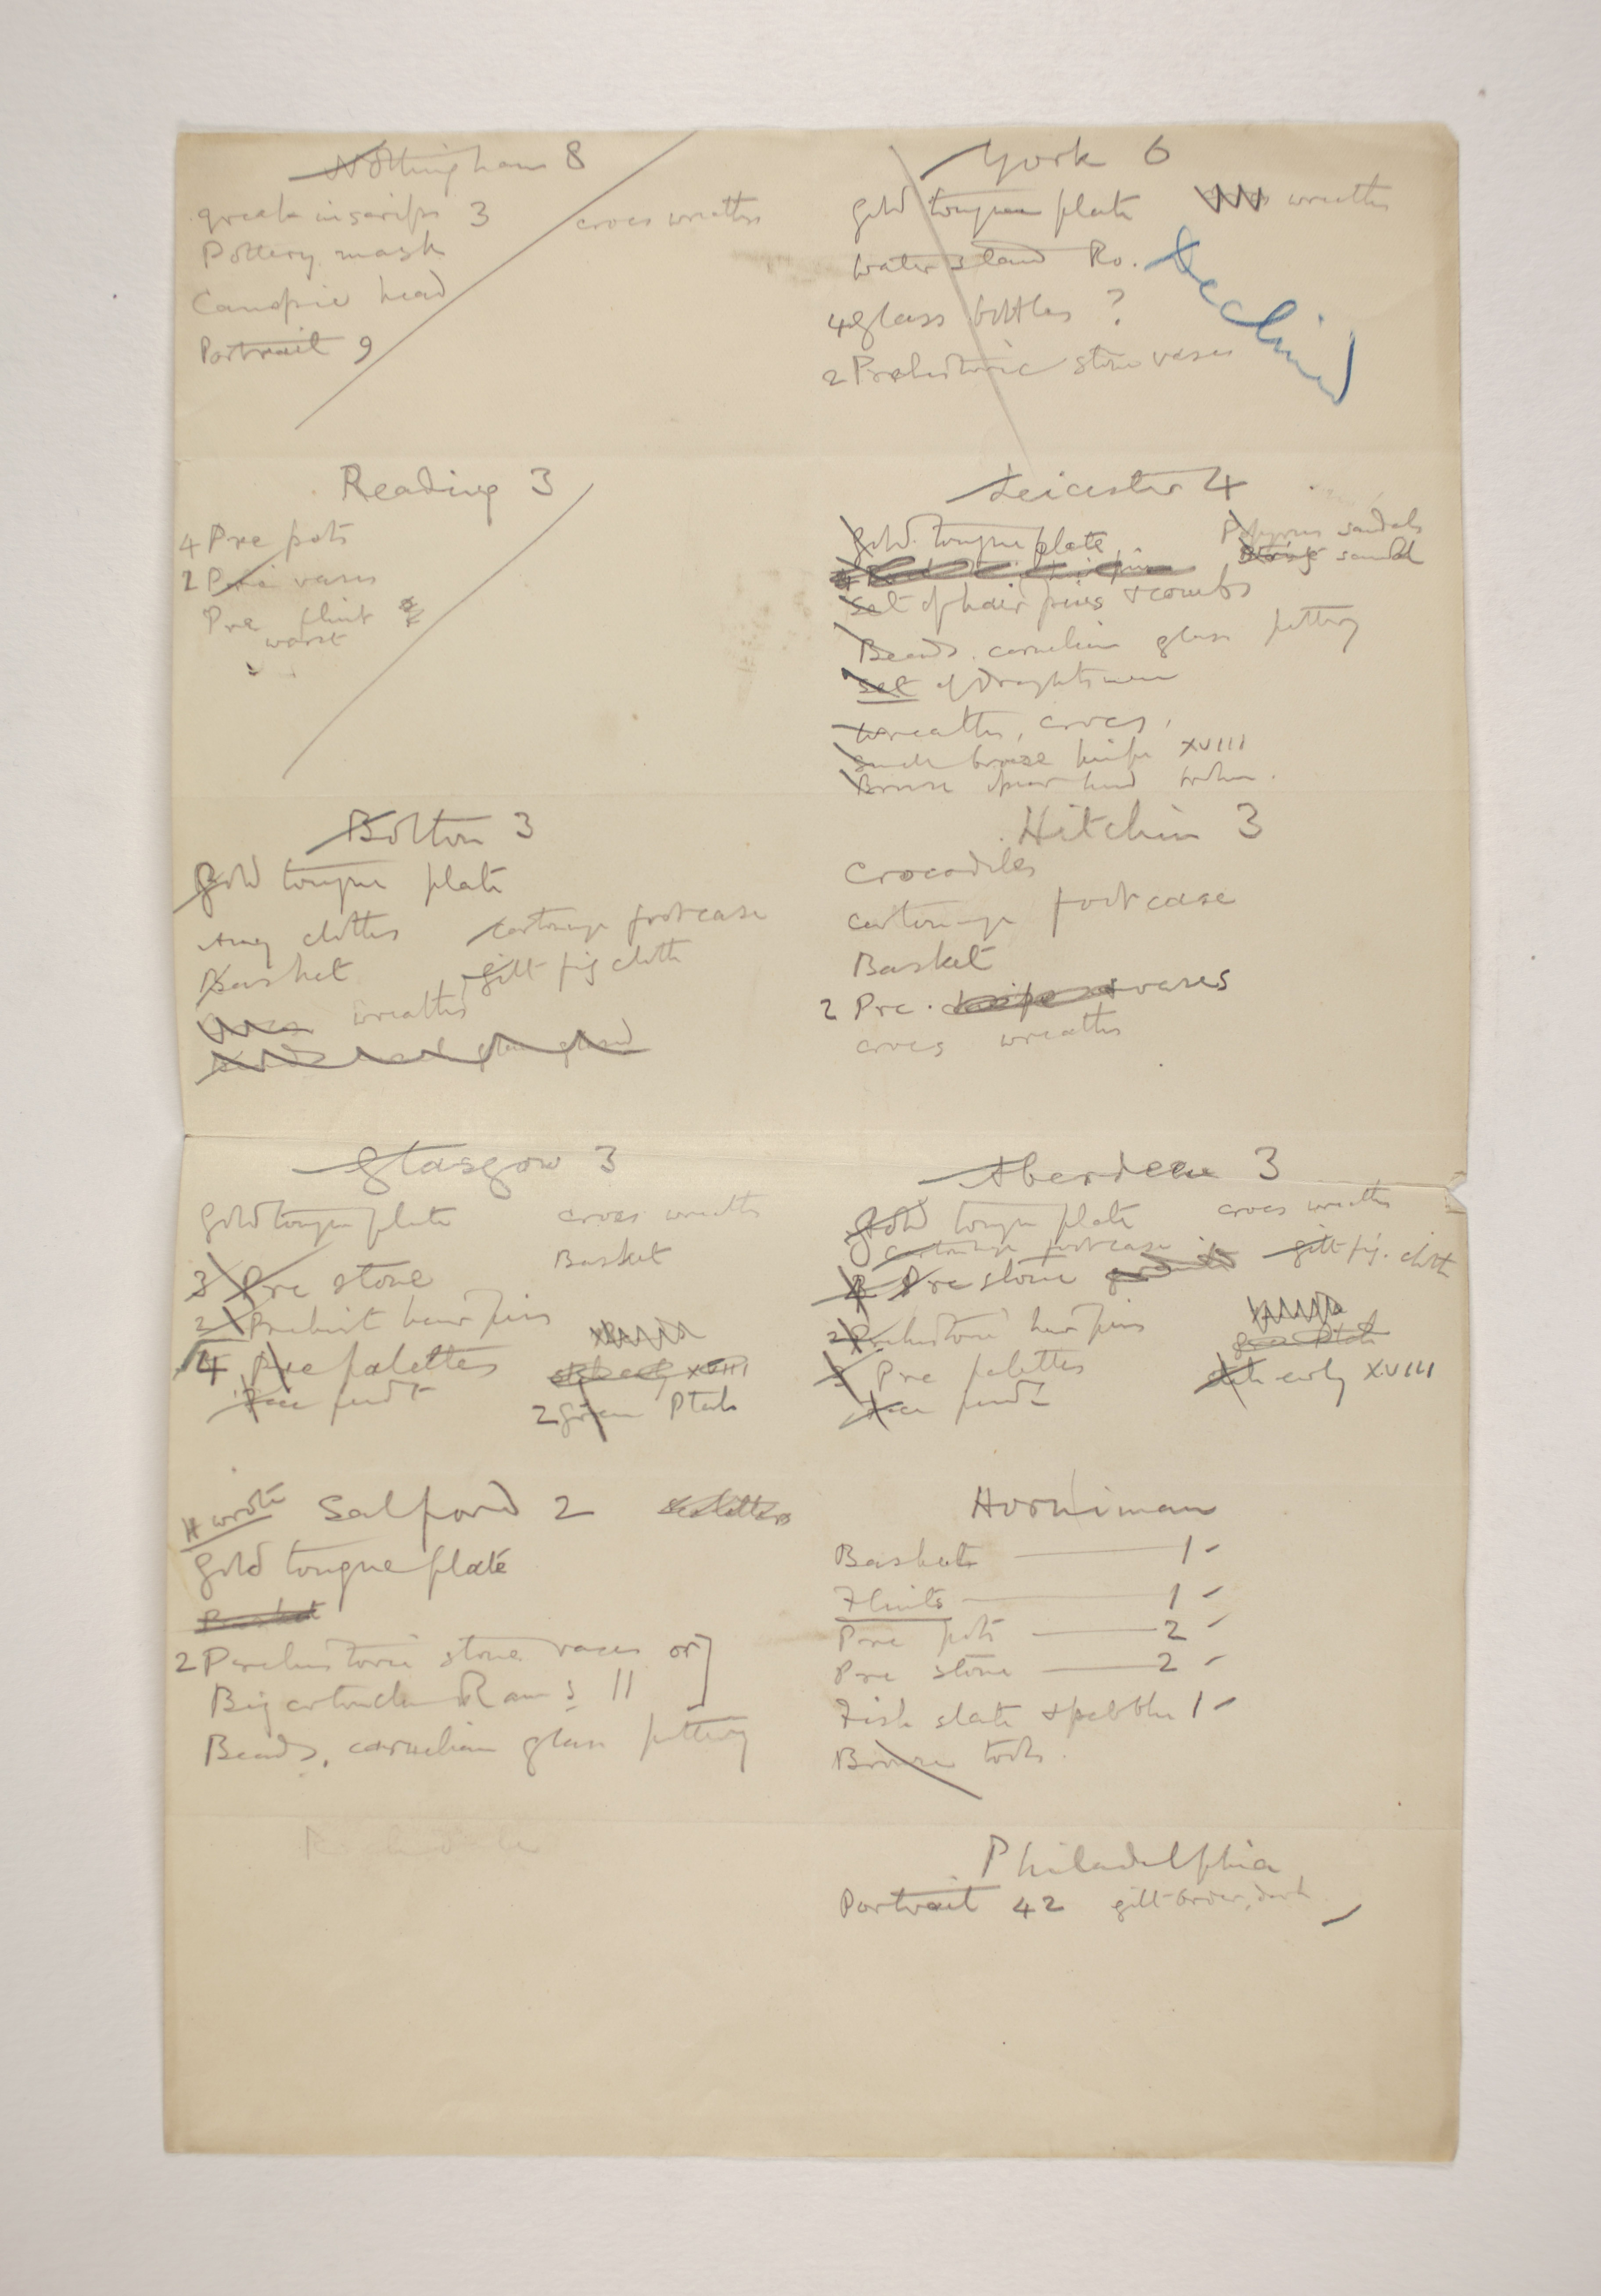 Nottingham 8
greek inscrips 3
crocs wreaths
Pottery mask
Canopic head
Portrait 9
York 6
Gold tongue plate
wreaths
Water stand Ro.
Declined
4 glass bottles ?
2 Prehistoric stone vases
Reading 3
4 Pre pots
2 Pre vases
Pre flint
worst
Leicester 4
Gold tongue plate
Papyrus sandals
sandal
Set of hair pins & combs
Beads. carnelian glass pottery
Set of draughtsmen
Wreaths, crocs,
Small bronze knife XVIII
Bronze spear head broken.
Bolton 3
Gold tongue plate
clothes
cartonnage footcase
Basket
gilt fig cloth
wreaths
Hitchin 3
Crocodiles
cartonnage footcase
Basket
2 Pre. vases
crocs wreaths
Glasgow 3
Gold tongue plate
crocs wreaths
Basket
3 Pre stone
2 Prehist hair pins
4 Pre palettes
XVIII
2 green Ptah
Aberdeen 3
Gold tongue plate
crocs wreaths
cartonnage footcase
gilt fig. cloth
Pre stone
2 Prehistoric hair pins
Pre palettes
early XVIII
wrote
Salford 2
Gold tongue plate
Basket
2 Prehistoric stone vases or]
Big cartouche Rams II
Beads, carnelian glass pottery
Horniman
Baskets — 1 -
Flints — 1 -
Pre pots — 2 -
Pre stone — 2 -
Fish slate & pebble 1 -
Bronze tools.
Philadelphia
Portrait 42 gilt border, dark